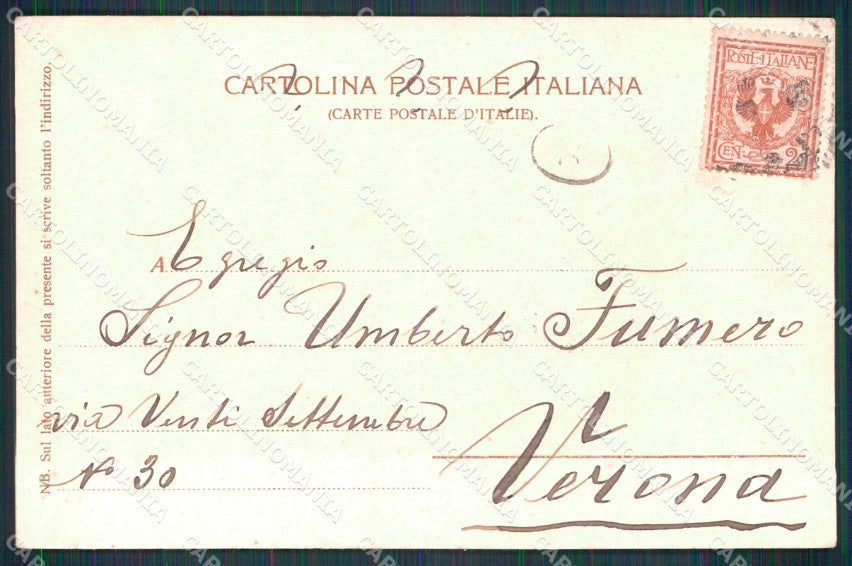 CARTOLINA POSTALE ITALIANA
(CARTE POSTALE D'ITALIE).
POSTE·ITALIANE
CEN. 2
A Egregio
Signor Umberto Fumero
via Venti Settembre
N° 30
Verona
NB. Sul lato anteriore della presente si scrive soltanto l'indirizzo.
CARTOLINOMANIA